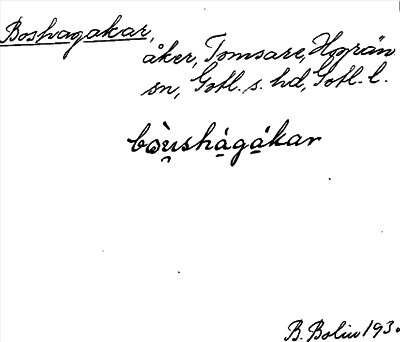 Boshagakar,
åker, Tomsare, Hogrän
sn, Gotl. s. hd, Gotl. l.
bòu̯shá̱gá̱kar
B. Bolin 193.